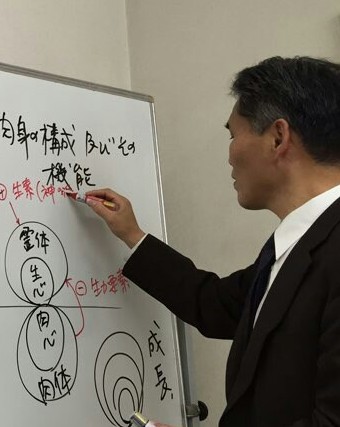 肉身の構成 及びその
機能
⊕ 生素(神の
霊体
生
心
⊖ 生力要素
肉
心
肉体
成長